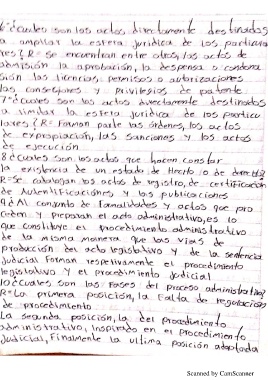 6-¿cuales son los actos directamente destinados
a ampliar la esfera juridica de los particula
res? R= Se encuentran entre otros, los actos de
admisión la aprobación, la dispensa o condona
sión las licencias, permisos o autorizaciones
las consesiones y privilegios de patente
7-¿cuales son los actos directamente destinados
a limitar la esfera juridica de los particu
lares? R= Forman parte las órdenes, los actos
de expropiación, las sanciones y los actos
de ejecución
8 ¿cuales son los actos que hacen constar
la existencia de un estado de Hecho o de derecho?
R= Se catalogan los actos de registro, de certificación
de Autentificaciones y las publicaciones
9 ¿Al conjunto de formalidades y actos que pre
ceden y preparan el acto administrativo, es lo
que constituye el procedimiento administrativo
de la misma manera que las vias de
producción del acto legislativo y de la sentencia
judicial forman respetivamente el procedimiento
legislativo y el procedimiento judicial
10 ¿cuales son las fases del proceso administrativo?
R= La primera posición, la falta de regulación
de procedimiento
La segunda posición, la del procedimiento
administrativo, inspirado en el procedimiento
Judicial, Finalmente la ultima posición adoptada
Scanned by CamScanner